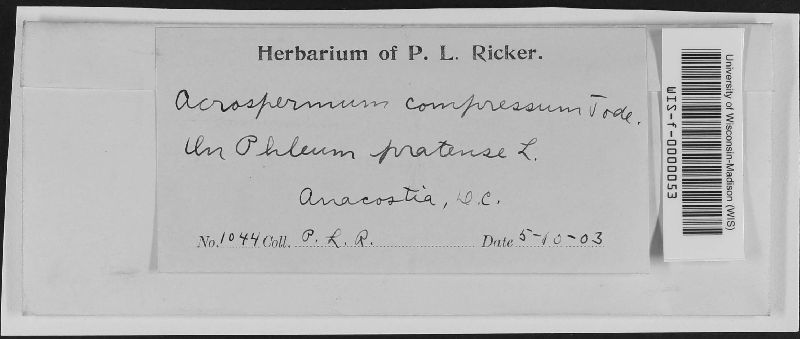 Herbarium of P. L. Ricker.
Acrospermum compressum Tode.
On Phleum pratense L.
Anacostia, D.C.
No. 1044 Coll. P. L. R. Date 5-10-03
University of Wisconsin-Madison (WIS)
WIS-f-0000053